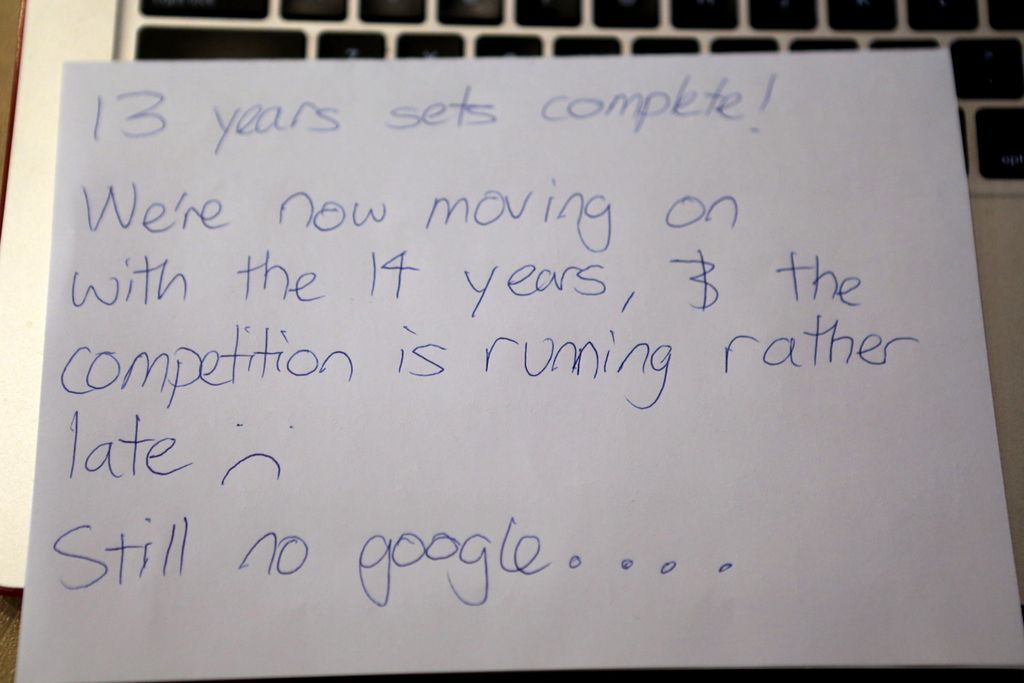 13 years sets complete!
We're now moving on
with the 14 years, & the
competition is running rather
late :(
Still no google....
opt